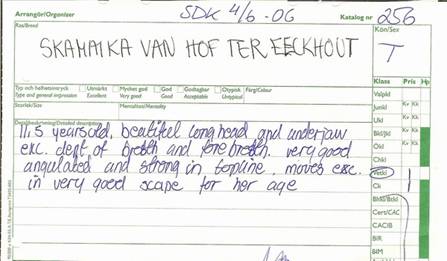 Arrangör/Organiser
SDK 4/6 - 06
Katalog nr 256
Ras/Breed
SKAMAIKA VAN HOF TER EECKHOUT
Kön/Sex
T
Typ och helhetsintryck
Type and general impression
Utmärkt
Excellent
Mycket god
Very good
God
Good
Godtagbar
Acceptable
Otypisk
Untypical
Färg/Colour
Storlek/Size
Mentalitet/Mentality
Klass Pris
Valpkl
Junkl Kv Kk
Ukl Kv Kk
Bkl/Jkl Kv Kk
Ökl Kv Kk
Chkl
Vetkl 1
Ck 1
Bhkl/Bckl
Cert/CAC
CACIB
BIR
BIM
Detaljbeskrivning/Detailed description
11,5 years old, beatifiul long head and underjaw
exc. dept of bresth and fore bresth. very good
angulated and strong in topline. moves exc.
in very good scape for her age